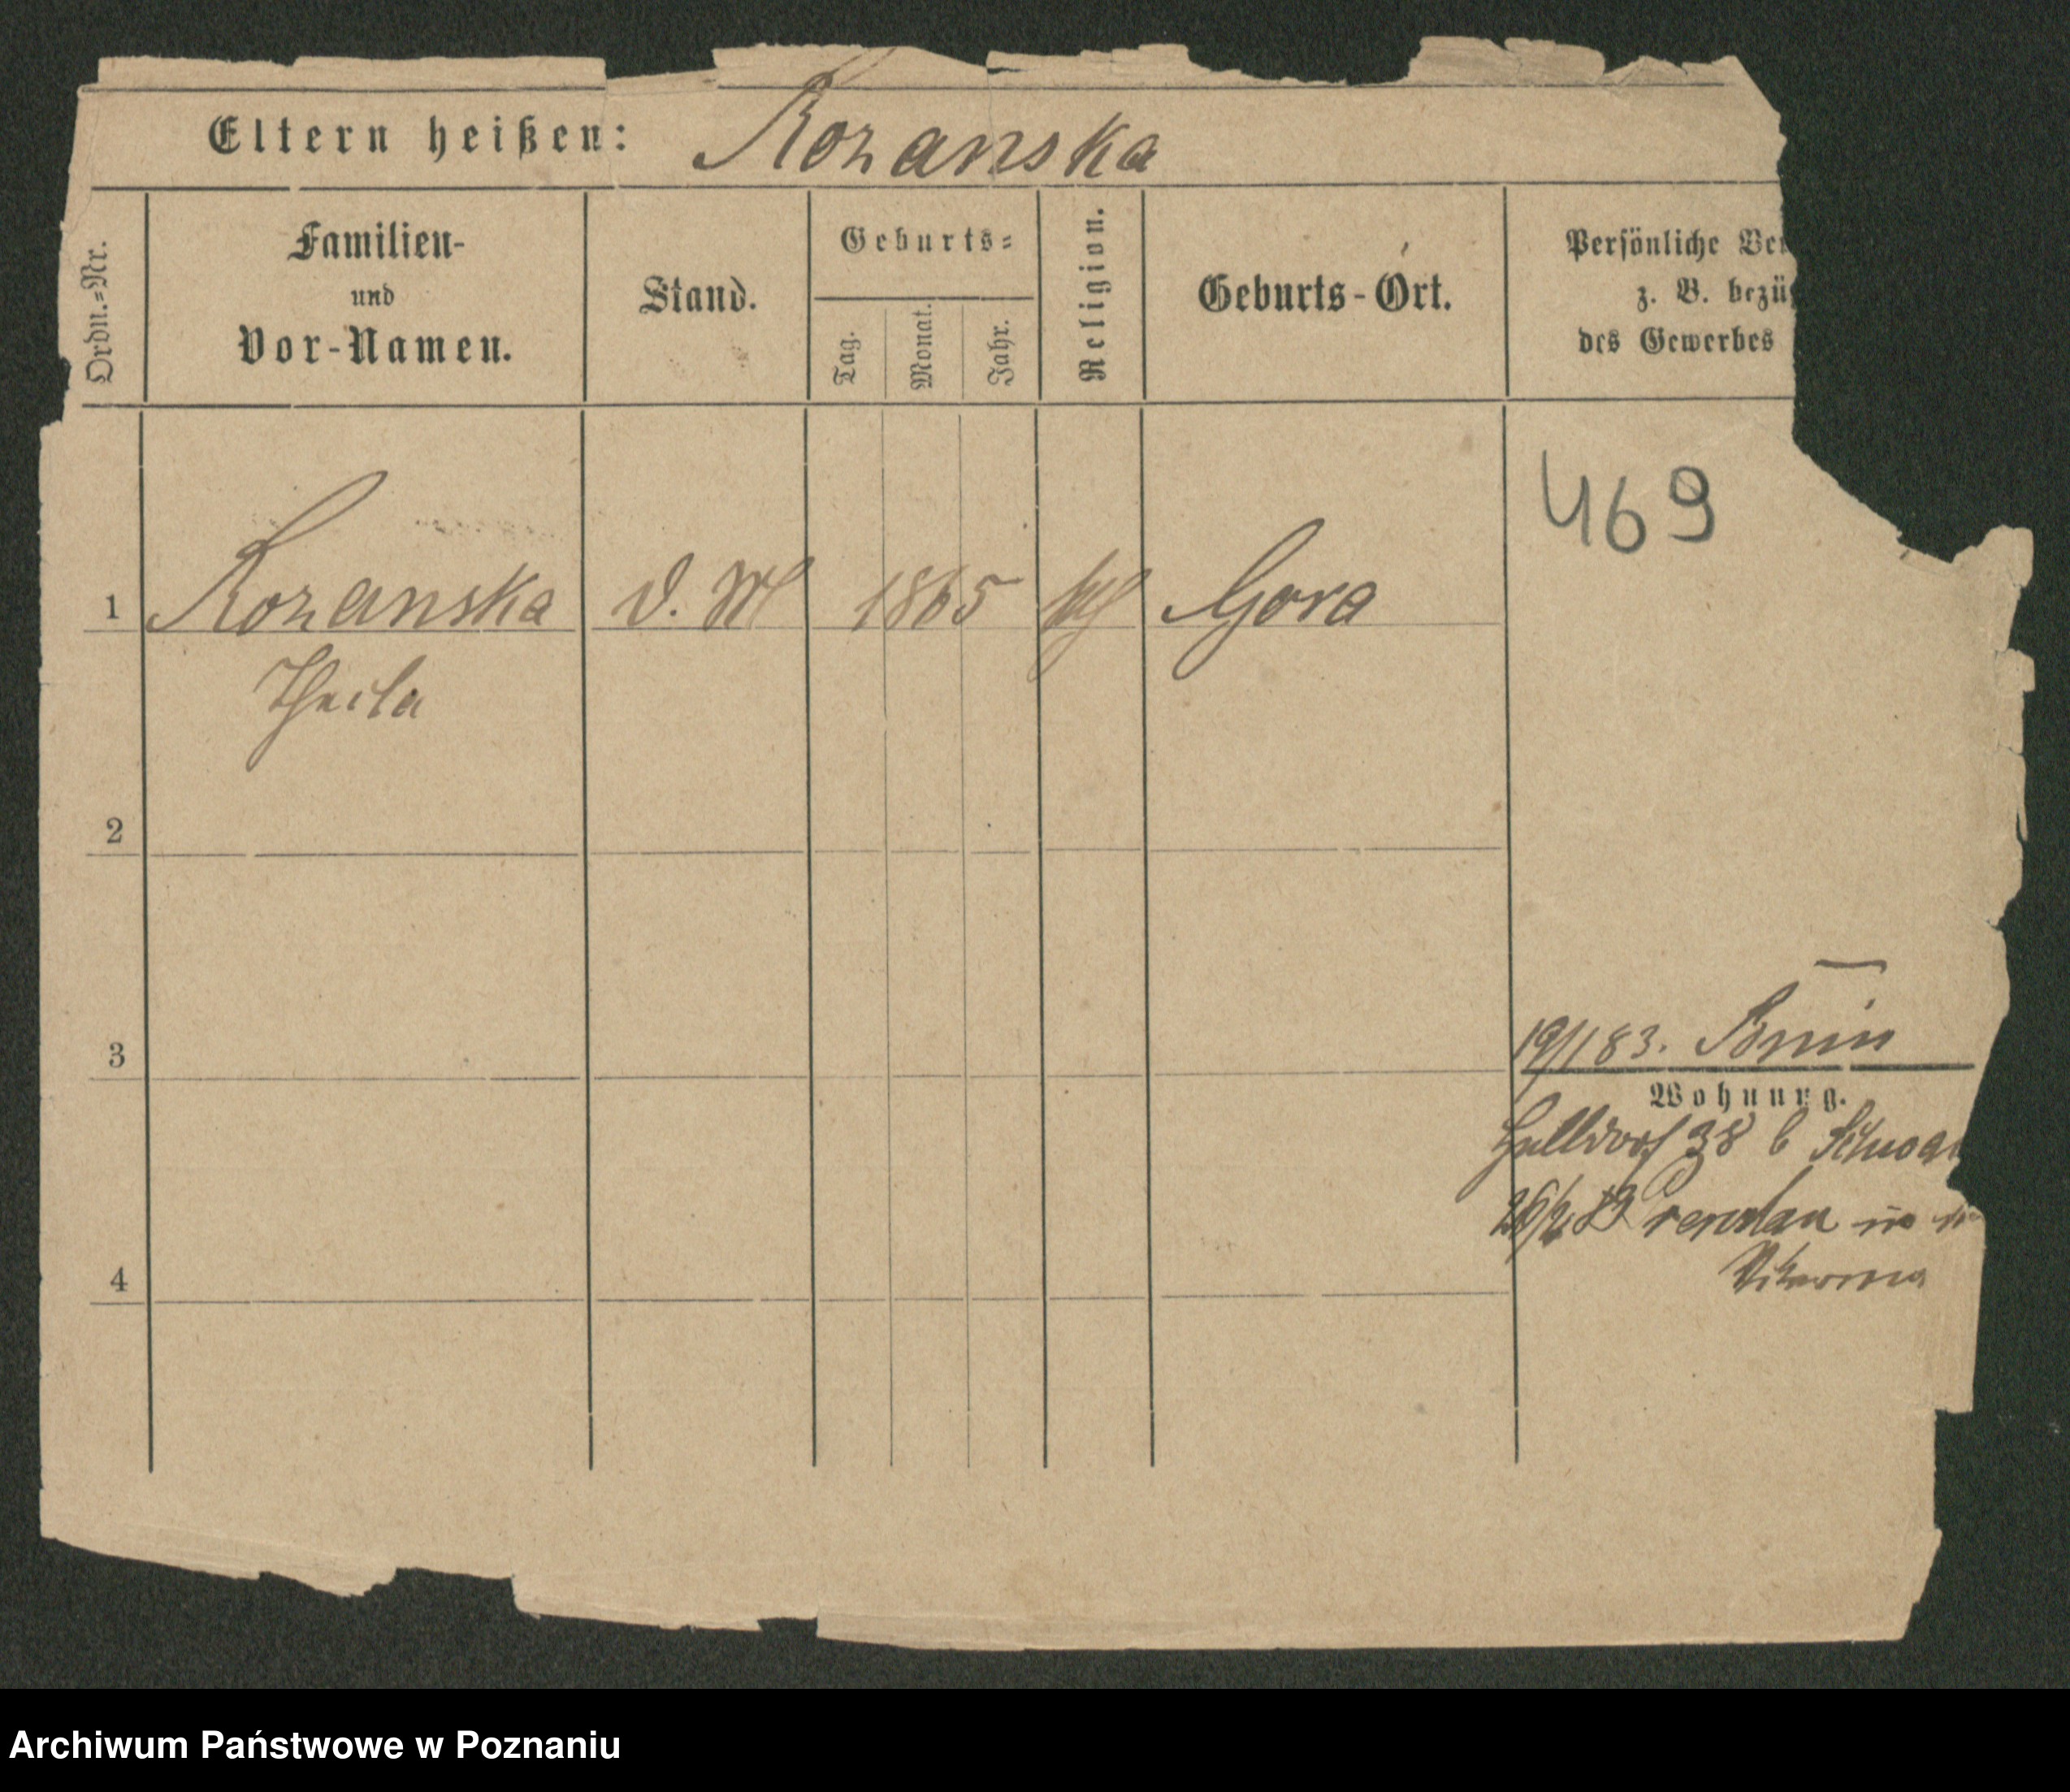 Eltern heißen: Rozanska
Ordn.=Nr.
Familien-
und
Vor-Namen.
Stand.
Geburts=
Tag.
Monat.
Jahr.
Religion.
Geburts-Ort.
Persönliche Ver
z. B. bezüg
des Gewerbes
469
1 Rozanska d. M 1865 kth Gora
Thecla
2
3
19/1 83. Bnin
Wohnung.
Halldorf 38 b
26/2 83
4
Archiwum Państwowe w Poznaniu